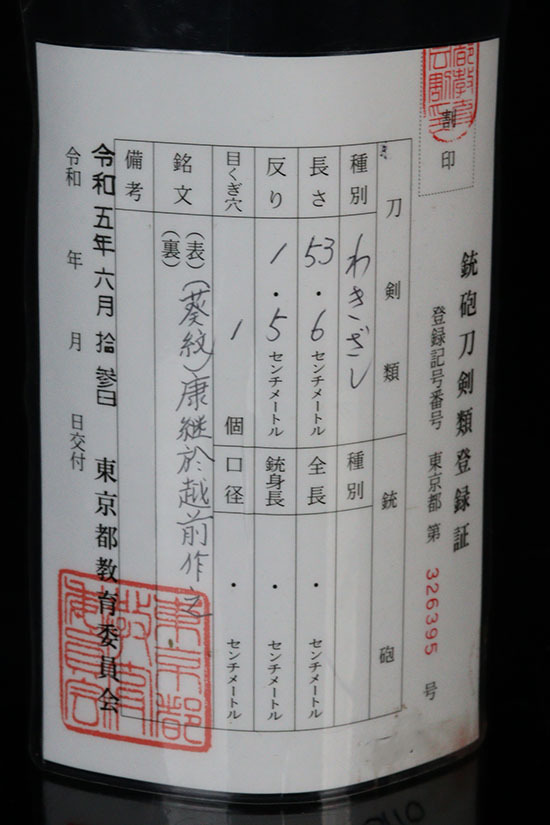 銃砲刀剣類登録証
割印
登録記号番号 東京都 第 326395 号
刀剣類
銃砲
種別 わきざし
種別
長さ 53・6 センチメートル
全長 ・ センチメートル
反り 1・5 センチメートル
銃身長 ・ センチメートル
目くぎ穴 1 個
口径 ・ センチメートル
銘文 (表) (葵紋)康継於越前作之
(裏)
備考
令和五年六月拾参日
東京都教育委員会
令和 年 月 日交付
東京都教育委員会